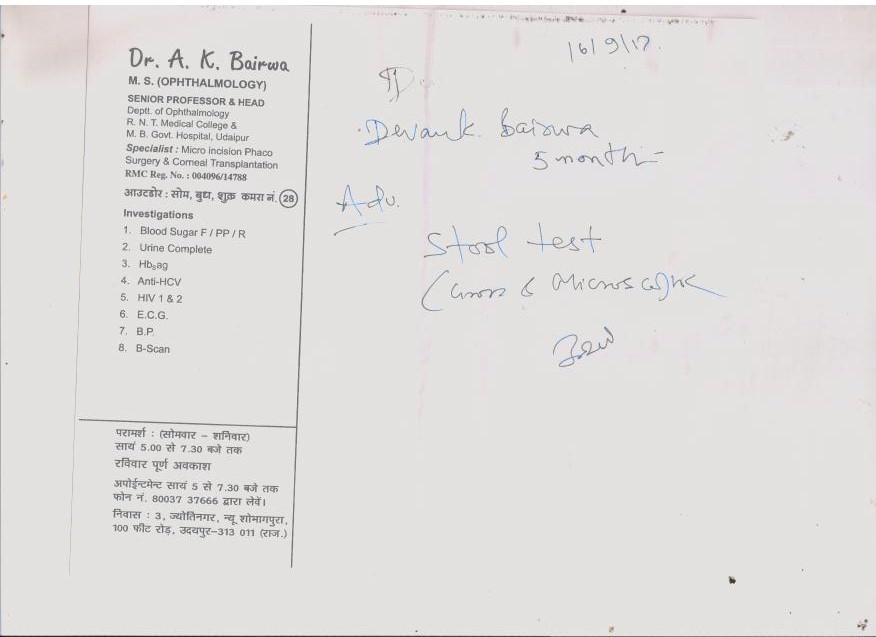 Dr. A. K. Bairwa
M. S. (OPHTHALMOLOGY)
SENIOR PROFESSOR & HEAD
Deptt. of Ophthalmology
R. N. T. Medical College &
M. B. Govt. Hospital, Udaipur
Specialist : Micro incision Phaco
Surgery & Corneal Transplantation
RMC Reg. No. : 004096/14788
आउटडोर : सोम, बुध, शुक्र कमरा नं. 28
Investigations
1. Blood Sugar F / PP / R
2. Urine Complete
3. Hbsag
4. Anti-HCV
5. HIV 1 & 2
6. E.C.G.
7. B.P.
8. B-Scan
परामर्श : (सोमवार – शनिवार)
सायं 5.00 से 7.30 बजे तक
रविवार पूर्ण अवकाश
अपोईन्टमेन्ट सायं 5 से 7.30 बजे तक
फोन नं. 80037 37666 द्वारा लेवें।
निवास : 3, ज्योतिनगर, न्यू शोभागपुरा,
100 फीट रोड़, उदयपुर–313 011 (राज.)
16/9/17.
Devank Bairwa
5 month
Adv.
Stool test
(Gross & Microscopic